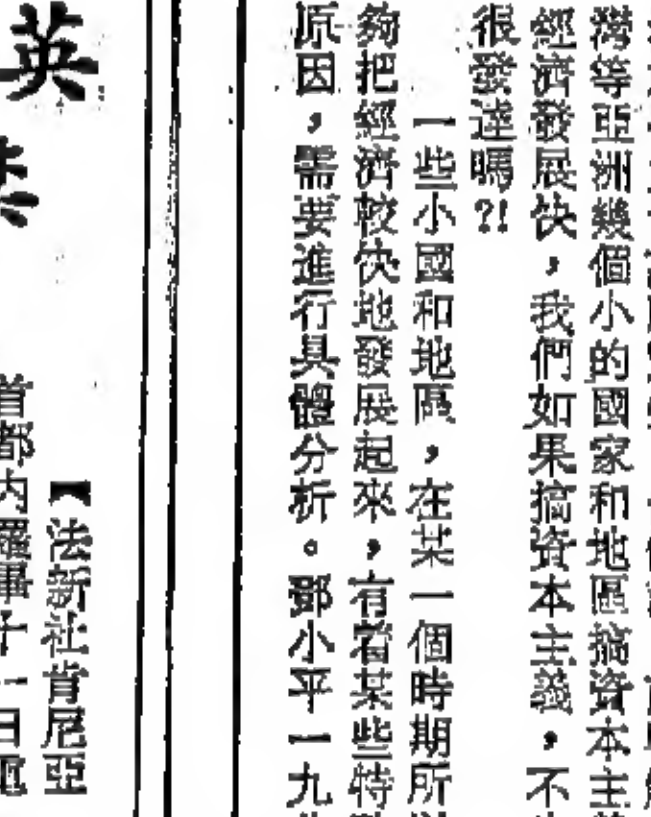 灣等亞洲幾個小的國家和地區搞資本主
經濟發展快，我們如果搞資本主義，不
很發達嗎?!
一些小國和地區，在某一個時期所
夠把經濟較快地發展起來，有着某些特
原因，需要進行具體分析。鄧小平一九
英
【法新社肯尼亞
首都内羅畢十一日電